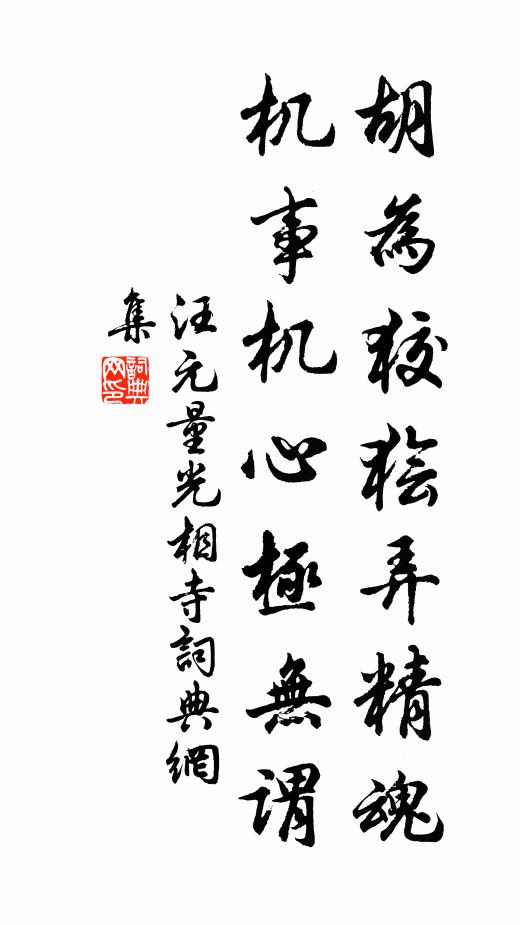 胡為狡獪弄精魂
机事机心極無謂
汪元量光相寺詞典網
集
詞典網印